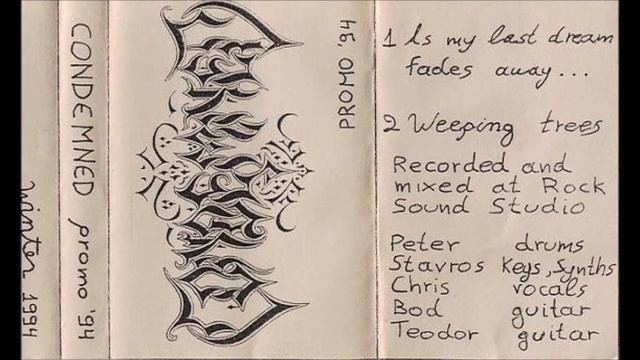 Winter 1994
CONDEMNED promo '94
PROMO '94
1 Is my last dream
fades away...
2 Weeping trees
Recorded and
mixed at Rock
Sound Studio
Peter drums
Stavros Keys, Synths
Chris vocals
Bod guitar
Teodor guitar